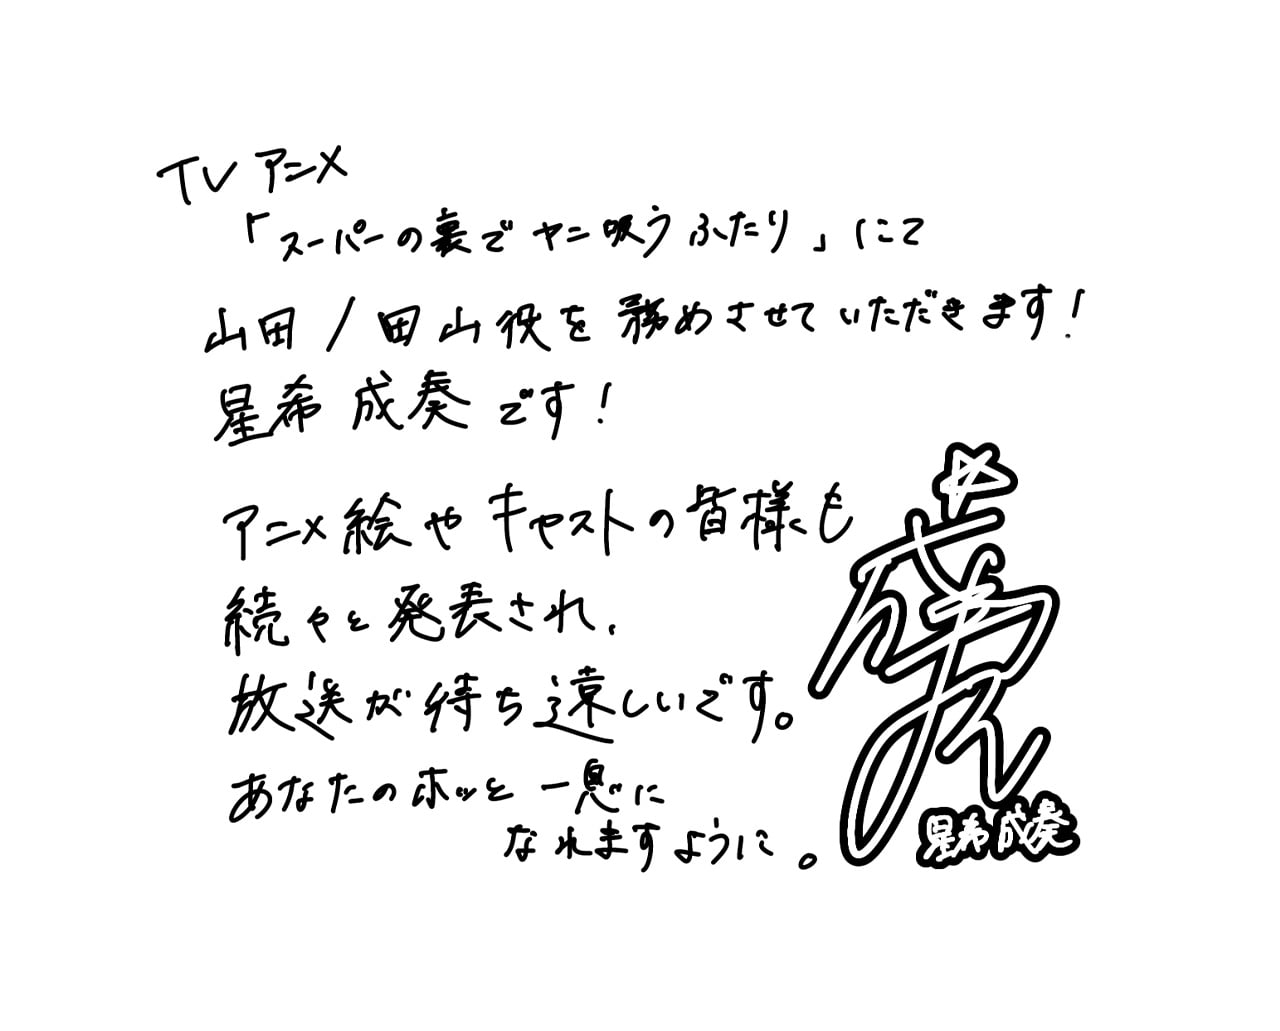 TVアニメ
「スーパーの裏でヤニ吸うふたり」にて
山田/田山役を務めさせていただきます!
星希成奏です!
アニメ絵やキャストの皆様も
続々と発表され、
放送が待ち遠しいです。
あなたのホッと一息に
なれますように。
星希成奏